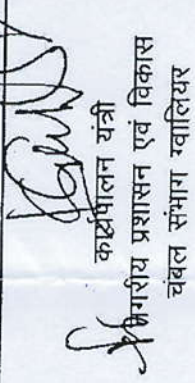 कार्यपालन यंत्री
नगरीय प्रशासन एवं विकास
चंबल संभाग ग्वालियर